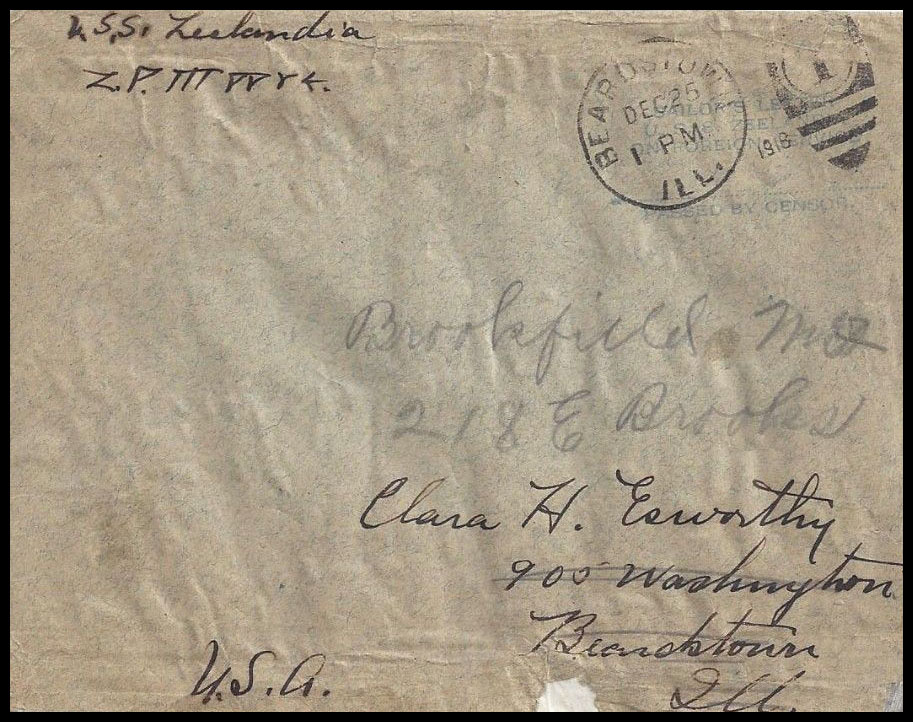 U.S.S. Zeelandia
Z.P.
BEARDSTOWN
DEC 25
1 PM
ILL.
1918
1
SAILOR'S
U.S.S.
ON FOREIGN
PASSED BY CENSOR.
Brookfield Mo
218 E Brooks
Clara H. Esworthy
900 Washington
Beardstown
Ill.
U.S.A.